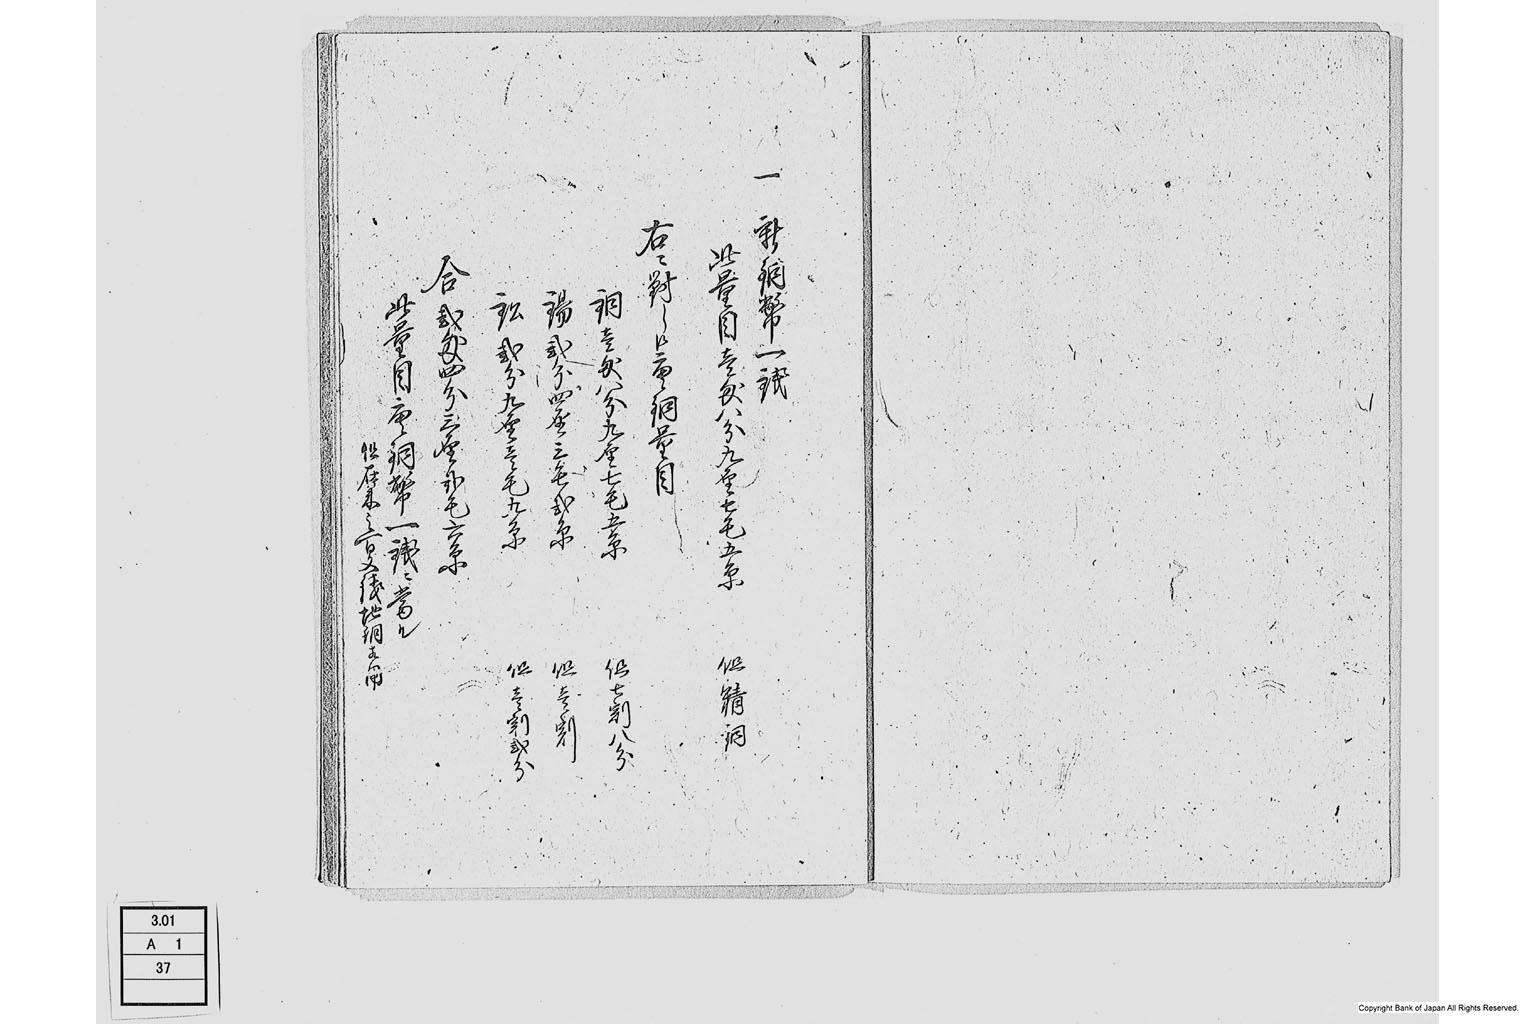 一 新銅幣一銭
此量目壱匁八分九厘七毛五糸 但精銅
右ニ対し候 銅量目
銅壱匁八分九厘七毛五糸 但七割八分
錫弐分四厘三毛弐糸 但壱割
鉛弐分九厘壱毛九糸 但壱割弐分
合弐匁四分三厘弐毛六糸
此量目 銅幣一銭ニ当ル
但在来之百文銭地銅
3.01
A 1
37
Copyright Bank of Japan All Rights Reserved.